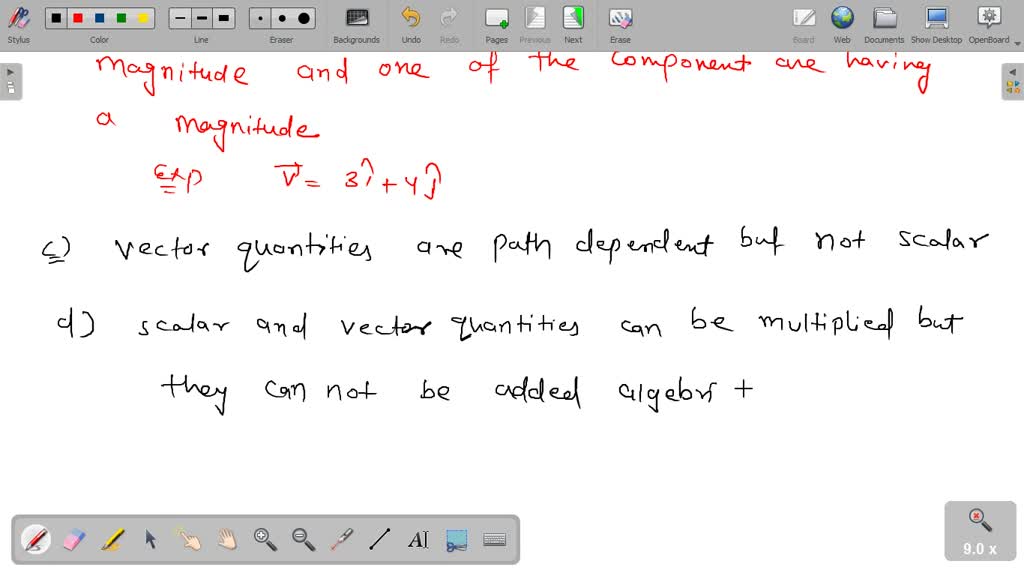 Stylus
Color
Line
Eraser
Backgrounds
Undo
Redo
Pages
Previous
Next
Erase
Board
Web
Documents
Show Desktop
OpenBoard
magnitude and one of the component are having
a magnitude
exp v = 3î + 4ĵ
c) vector quantities are path dependent but not scalar
d) scalar and vector quantities can be multiplied but
they can not be added algebri t
AI
9.0 x